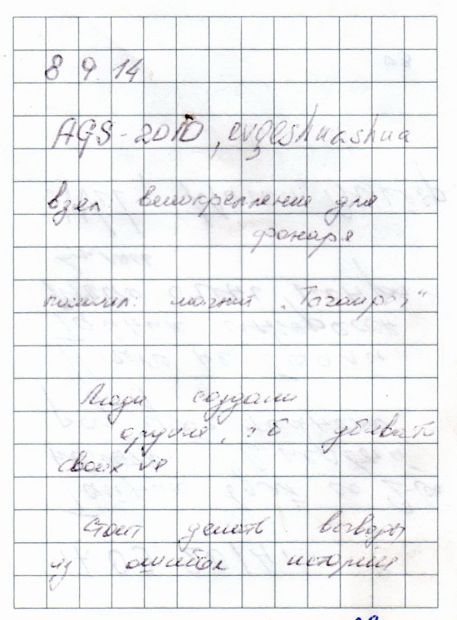 8 9 14
AGS-2010, evgeshuashua
взял велокрепление для
фонаря
магнит
Люди создали
оружие, убивать
своих
стоит делать выводы
из ошибок истории